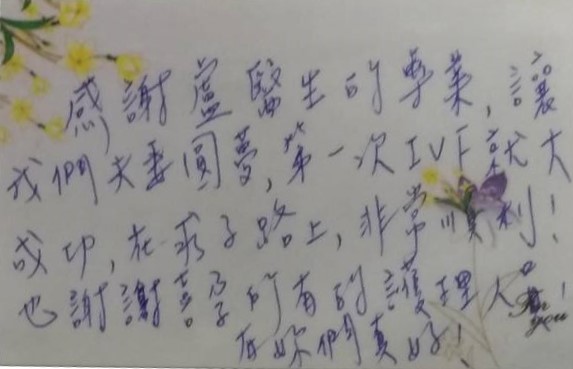 感謝盧醫生的專業,讓
我們夫妻圓夢,第一次IVF就大
成功,在求子路上,非常順利!
也謝謝喜孕所有的護理人員!
有妳們真好!
for you